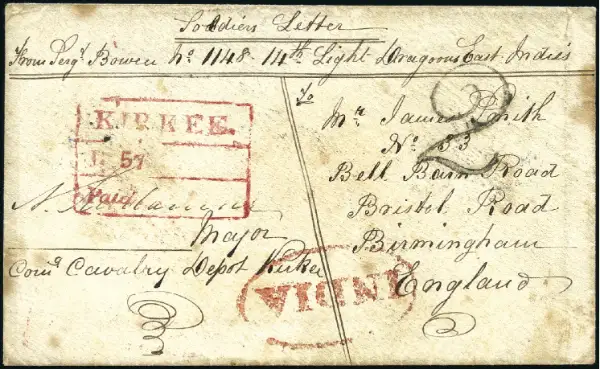 Soldiers Letter
From Sergt Bowen No 1148 14th Light Dragoons East Indies
KIRKEE.
57
Paid
N.
Major
Comg Cavalry Depot Kirkee
To
Mr James Smith
No 53
Bell Barn Road
Bristol Road
Birmingham
England
2
INDIA